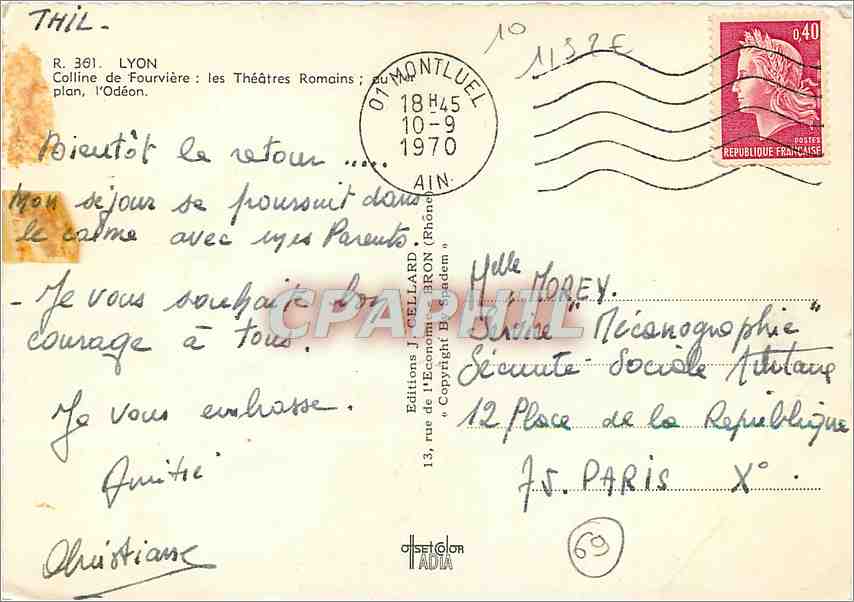 THIL -
R. 301. LYON
Colline de Fourvière : les Théâtres Romains ; au 1er
plan, l'Odéon.
Bientôt le retour .....
Mon séjour se poursuit dans
le calme avec mes Parents.
- Je vous souhaite bon
courage à tous.
Je vous embrasse.
Amitié
Christiane
10
01 MONTLUEL
18 H 45
10-9
1970
AIN
0,40
POSTES
REPUBLIQUE FRANÇAISE
Editions J. CELLARD
13, rue de l'Economie, BRON (Rhône)
« Copyright By Spadem »
CPARPHIL
Melle MOREY.
Service "Mécanographie"
Sécurité Sociale Militaire
12 Place de la République
75. PARIS X°.
69
OffsetColor
IADIA